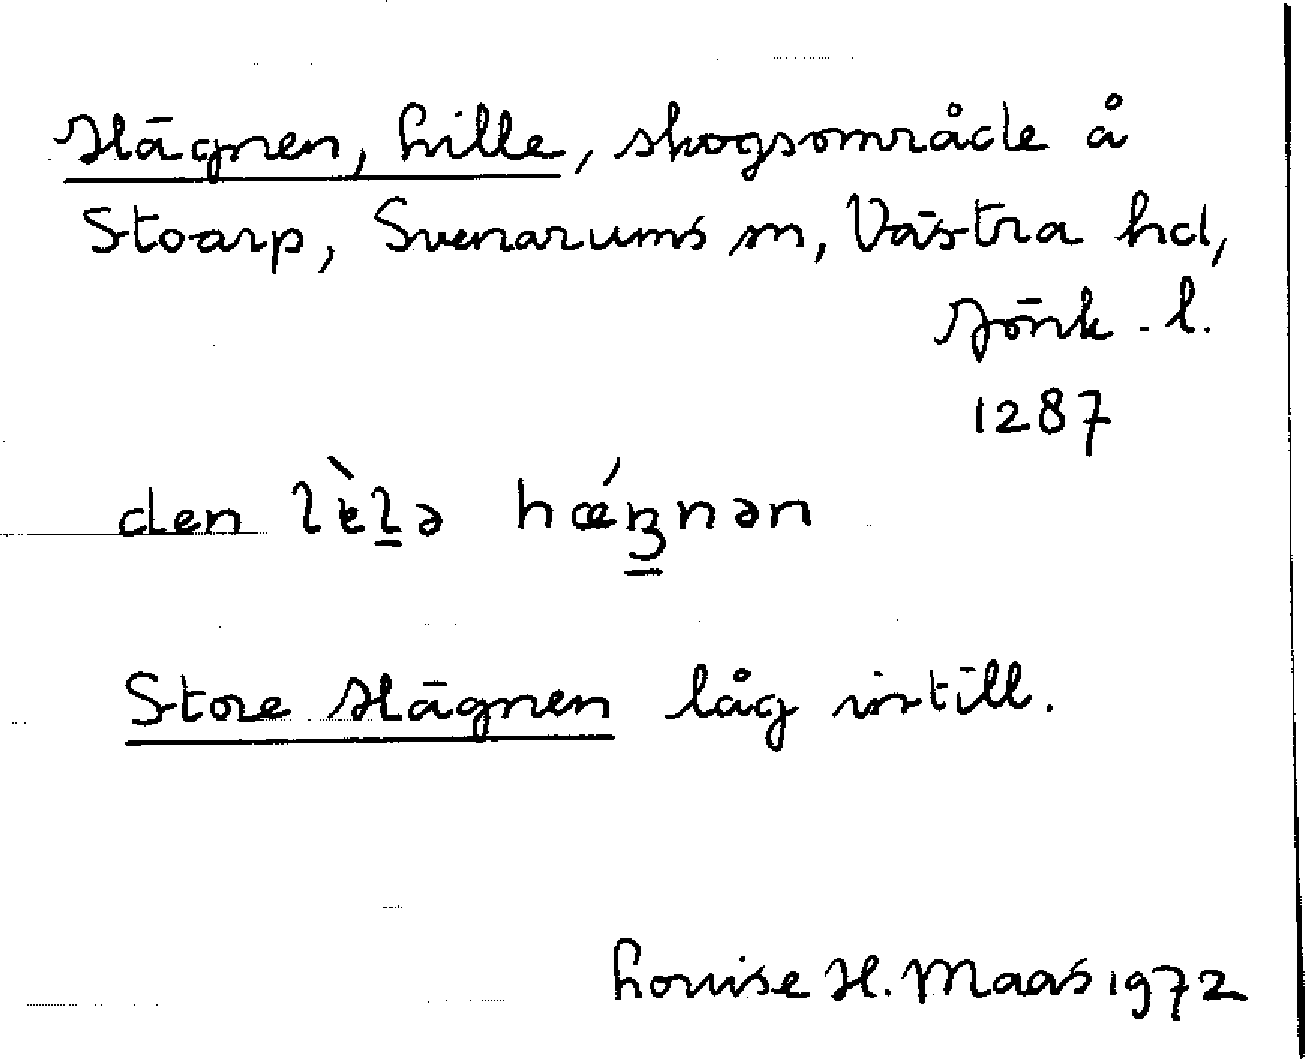 Hägnen, Lille, skogsområde å
Stoarp, Svenarums sn, Västra hd,
Jönk. l.
1287
den lèlə hǽgnən
Store Hägnen låg intill.
Louise H. Maas 1972